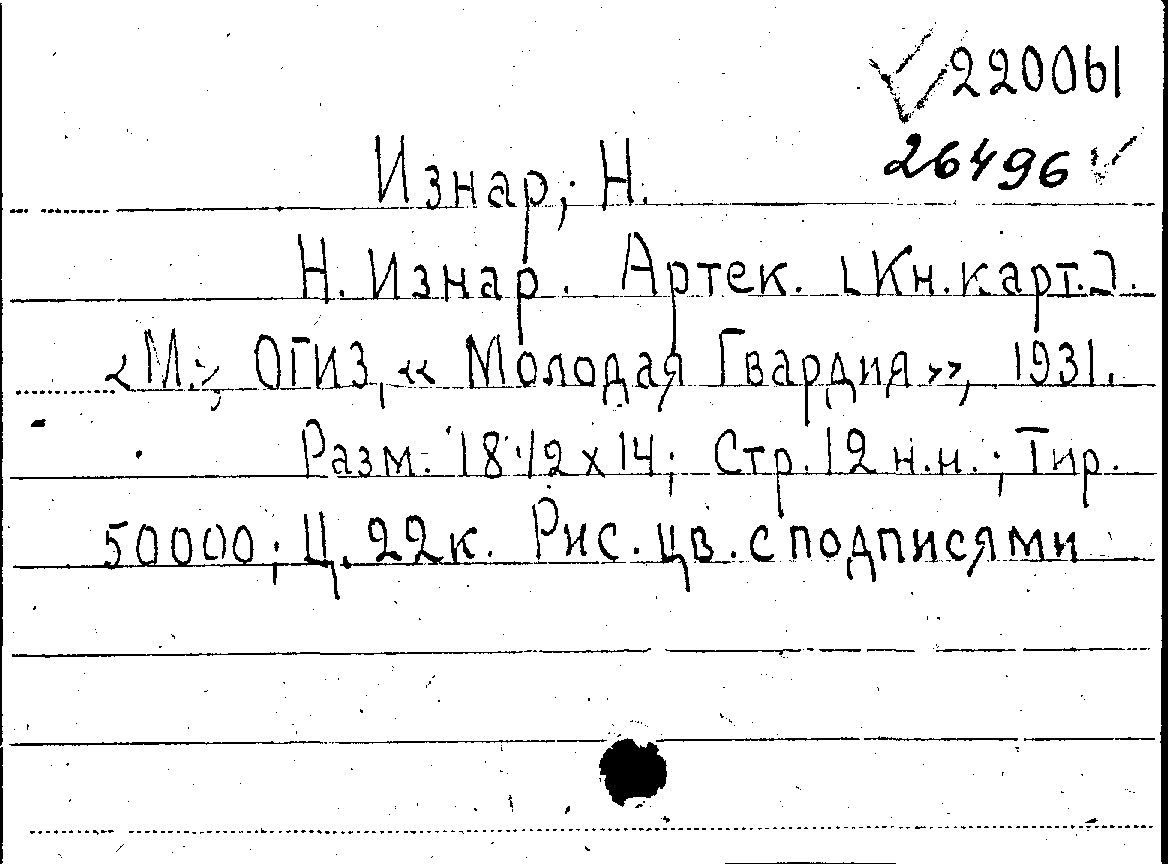 22006ы
26496
Изнар, Н.
Н. Изнар. Артек. [Кн. карт.].
<М.>, ОГИЗ, «Молодая Гвардия», 1931.
Разм. 18 1/2 х 14; Стр. 12 н.н.; Тир.
50000; Ц. 22 к. Рис. цв. с подписями